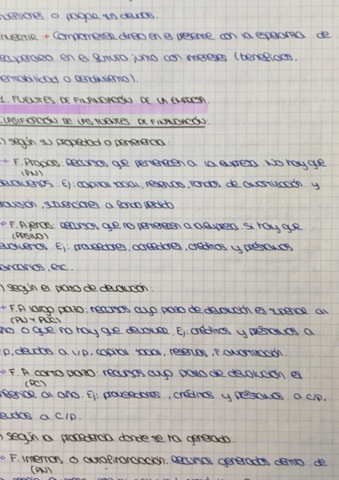 inversiones o pagar sus deudas.
Invertir → Comprometer dinero en el presente con la esperanza de
recuperarlo en el futuro junto con intereses (beneficios,
rentabilidad o rendimiento).
1. FUENTES DE FINANCIACIÓN DE LA EMPRESA.
CLASIFICACIÓN DE LAS FUENTES DE FINANCIACIÓN:
) según su propiedad o pertenencia:
F. Propias: Recursos que pertenecen a la empresa. No hay que
(PN)
devolverlos. Ej: capital social, reservas, fondos de amortización y
provisión, subvenciones a fondo perdido
F. Ajenas: Recursos que no pertenecen a la empresa. Si hay que
(PASIVO)
devolverlos. Ej: proveedores, acreedores, créditos y préstamos
bancarios, etc.
) según el plazo de devolución:
F. A largo plazo: recursos cuyo plazo de devolución es superior al
(PN + PNC)
año o que no hay que devolver. Ej: créditos y préstamos a
l/p, deudas a l/p, capital social, reservas, F. amortización.
F. A corto plazo: recursos cuyo plazo de devolución es
(PC)
inferior al año. Ej: proveedores, créditos y préstamos a C/P,
deudas a C/P.
) según la procedencia donde se ha generado:
F. internas, o autofinanciación: Recursos generados dentro de
(PN)